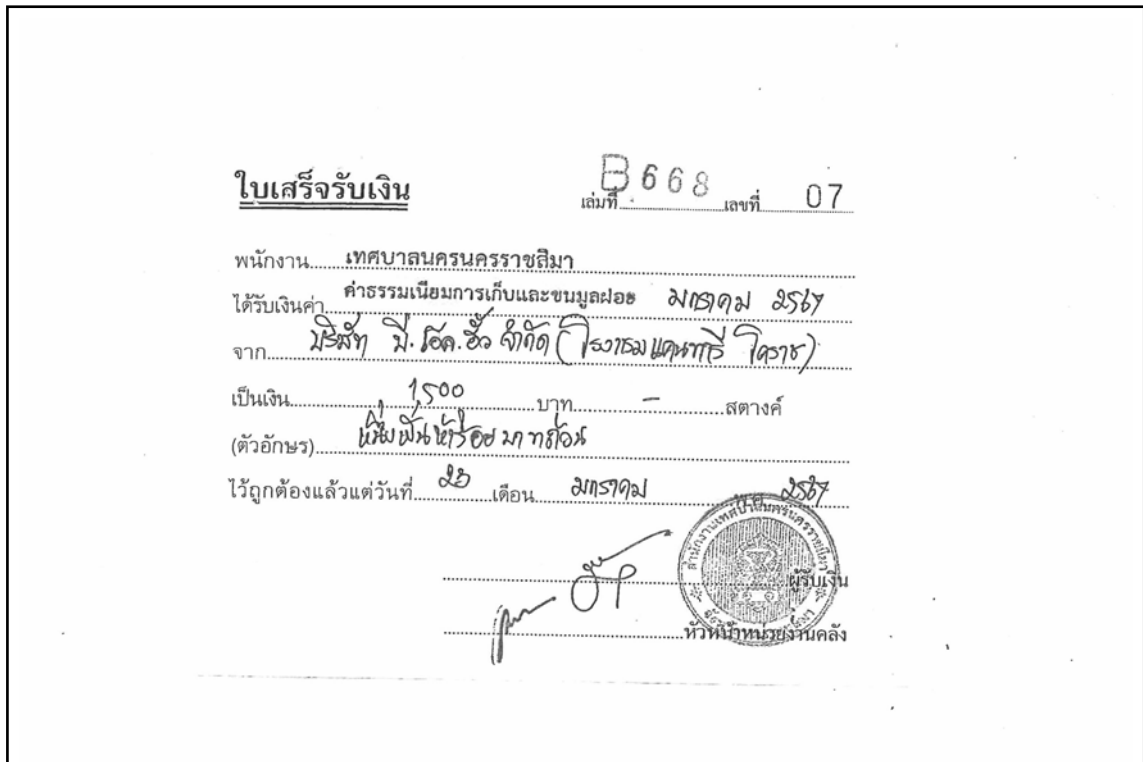 ใบเสร็จรับเงิน
เล่มที่ B668 เลขที่ 07
พนักงาน เทศบาลนครนครราชสีมา
ได้รับเงินค่า ค่าธรรมเนียมการเก็บและขนมูลฝอย มกราคม 2567
จาก บริษัท ปี. โอค. ฮั้ว จำกัด (โรงแรมแคนทารี โคราช)
เป็นเงิน 1,500 บาท - สตางค์
(ตัวอักษร) หนึ่งพันห้าร้อยบาทถ้วน
ไว้ถูกต้องแล้วแต่วันที่ 23 เดือน มกราคม 2567
ผู้รับเงิน
หัวหน้าหน่วยงานคลัง
สำนักงานเทศบาลนครนครราชสีมา